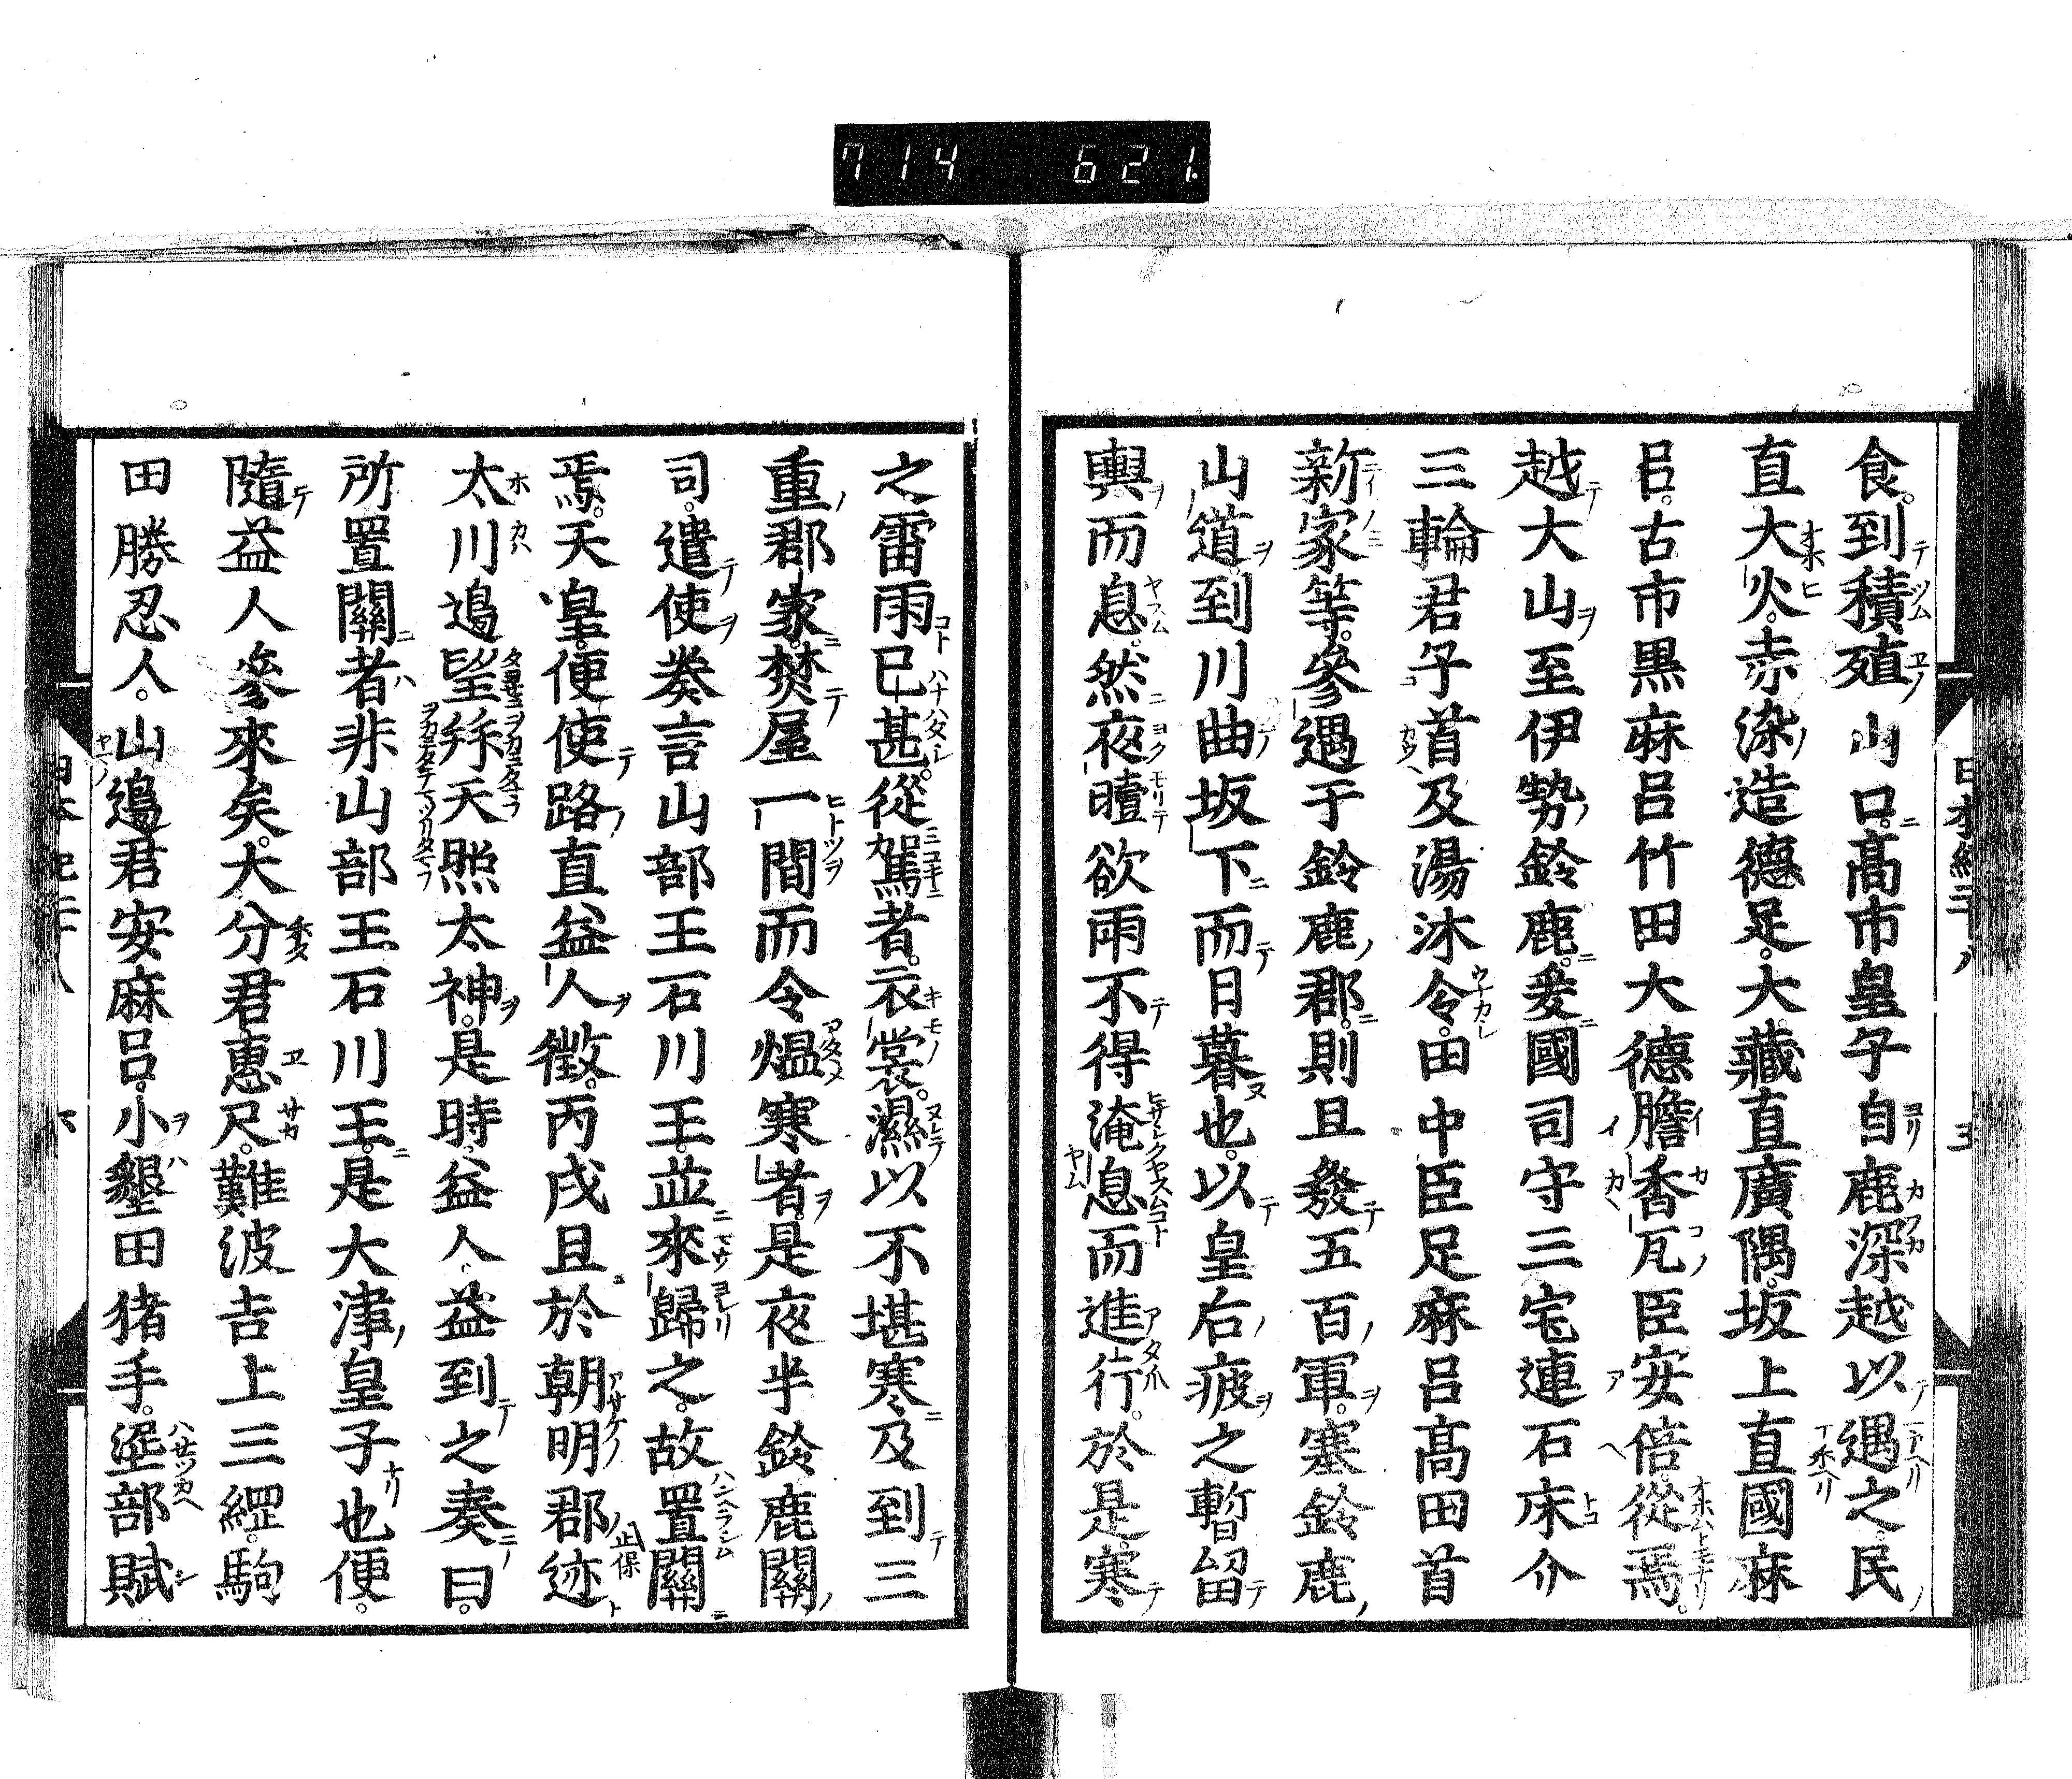 714 621.
食。到積殖山口。髙市皇子自鹿深越以遇之。民
直大火。赤染造德足。大藏直廣隅。坂上直國麻
呂。古市黒麻呂竹田大德膽香瓦臣安倍從焉。
越大山至伊勢鈴鹿。爰國司守三宅連石床介
三輪君子首及湯沐令。田中臣足麻呂髙田首
新家等。參遇于鈴鹿郡。則且發五百軍。塞鈴鹿
山道到川曲坂下而日暮也。以皇后疲之暫留
輿而息。然夜曀欲雨不得淹息而進行。於是。寒
之雷雨已甚。從駕者。衣裳。濕以不堪寒及到三
重郡家。焚屋一間而令煴寒者。是夜半鈴鹿關
司。遣使奏言山部王石川王。並來歸之。故置關
焉。天皇。便使路直益人徵。丙戌旦於朝明郡迹
太川邉望拜天照太神。是時益人益到之奏曰。
所置關者非山部王石川王。是大津皇子也便。
隨益人參來矣。大分君惠尺。難波吉士三綱。駒
田勝忍人。山邉君安麻呂。小墾田猪手。埿部眡